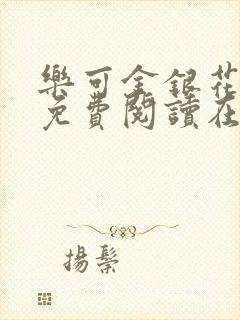 樂可金銀花
免費閱讀在
揚鬃